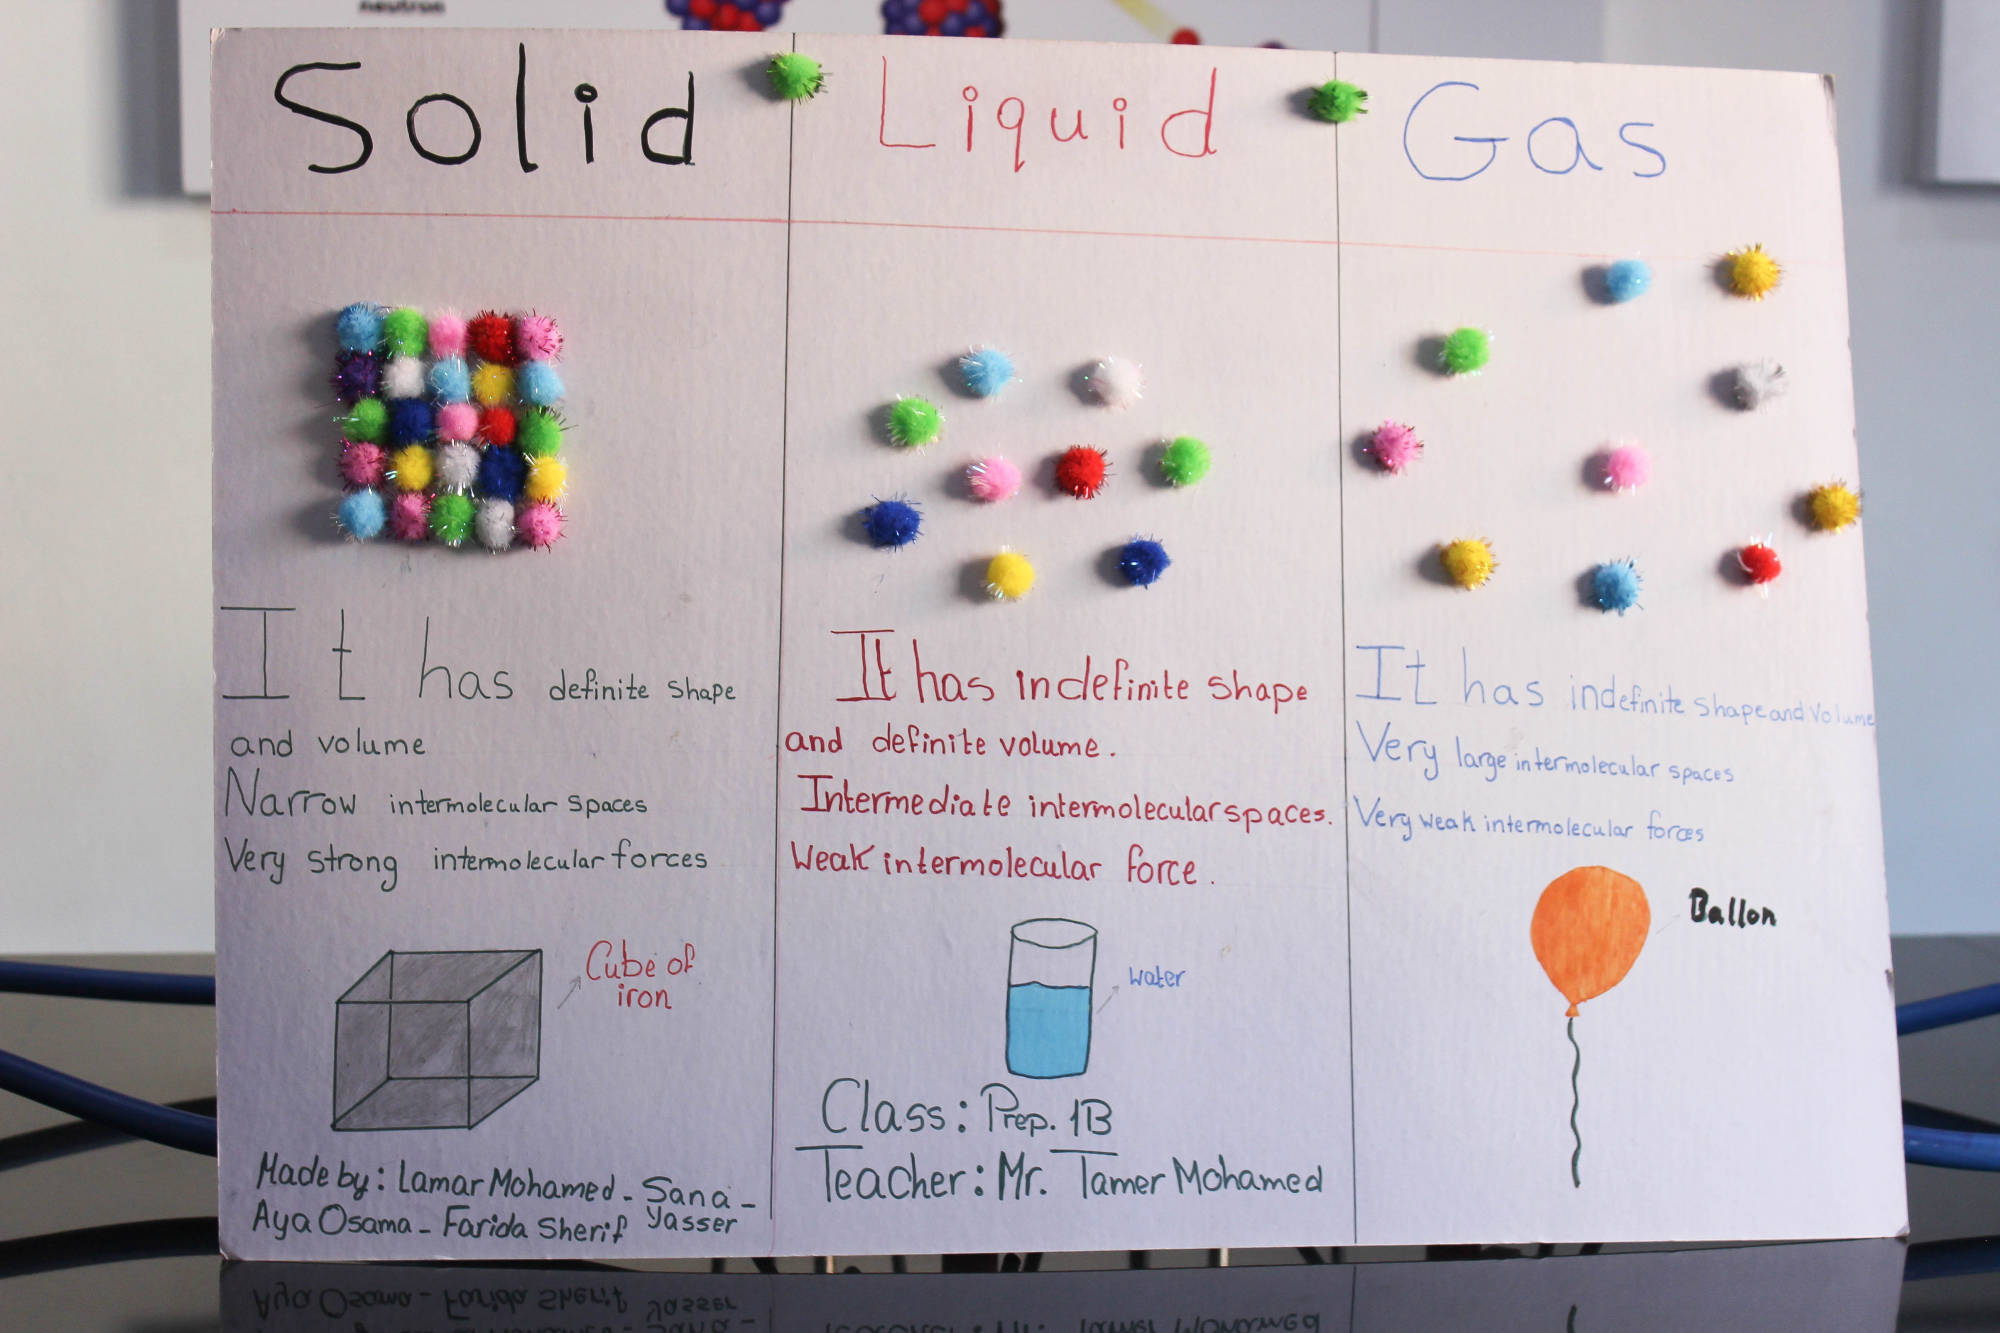 neutron
Solid
Liquid
Gas
It has definite shape
and volume
Narrow intermolecular spaces
Very strong intermolecular forces
Cube of
iron
Made by: Lamar Mohamed - Sana -
Aya Osama - Farida Sherif Yasser
It has indefinite shape
and definite volume.
Intermediate intermolecular spaces.
Weak intermolecular force.
water
Class: Prep. 1B
Teacher: Mr. Tamer Mohamed
It has indefinite shape and volume
Very large intermolecular spaces
Very weak intermolecular forces
Ballon